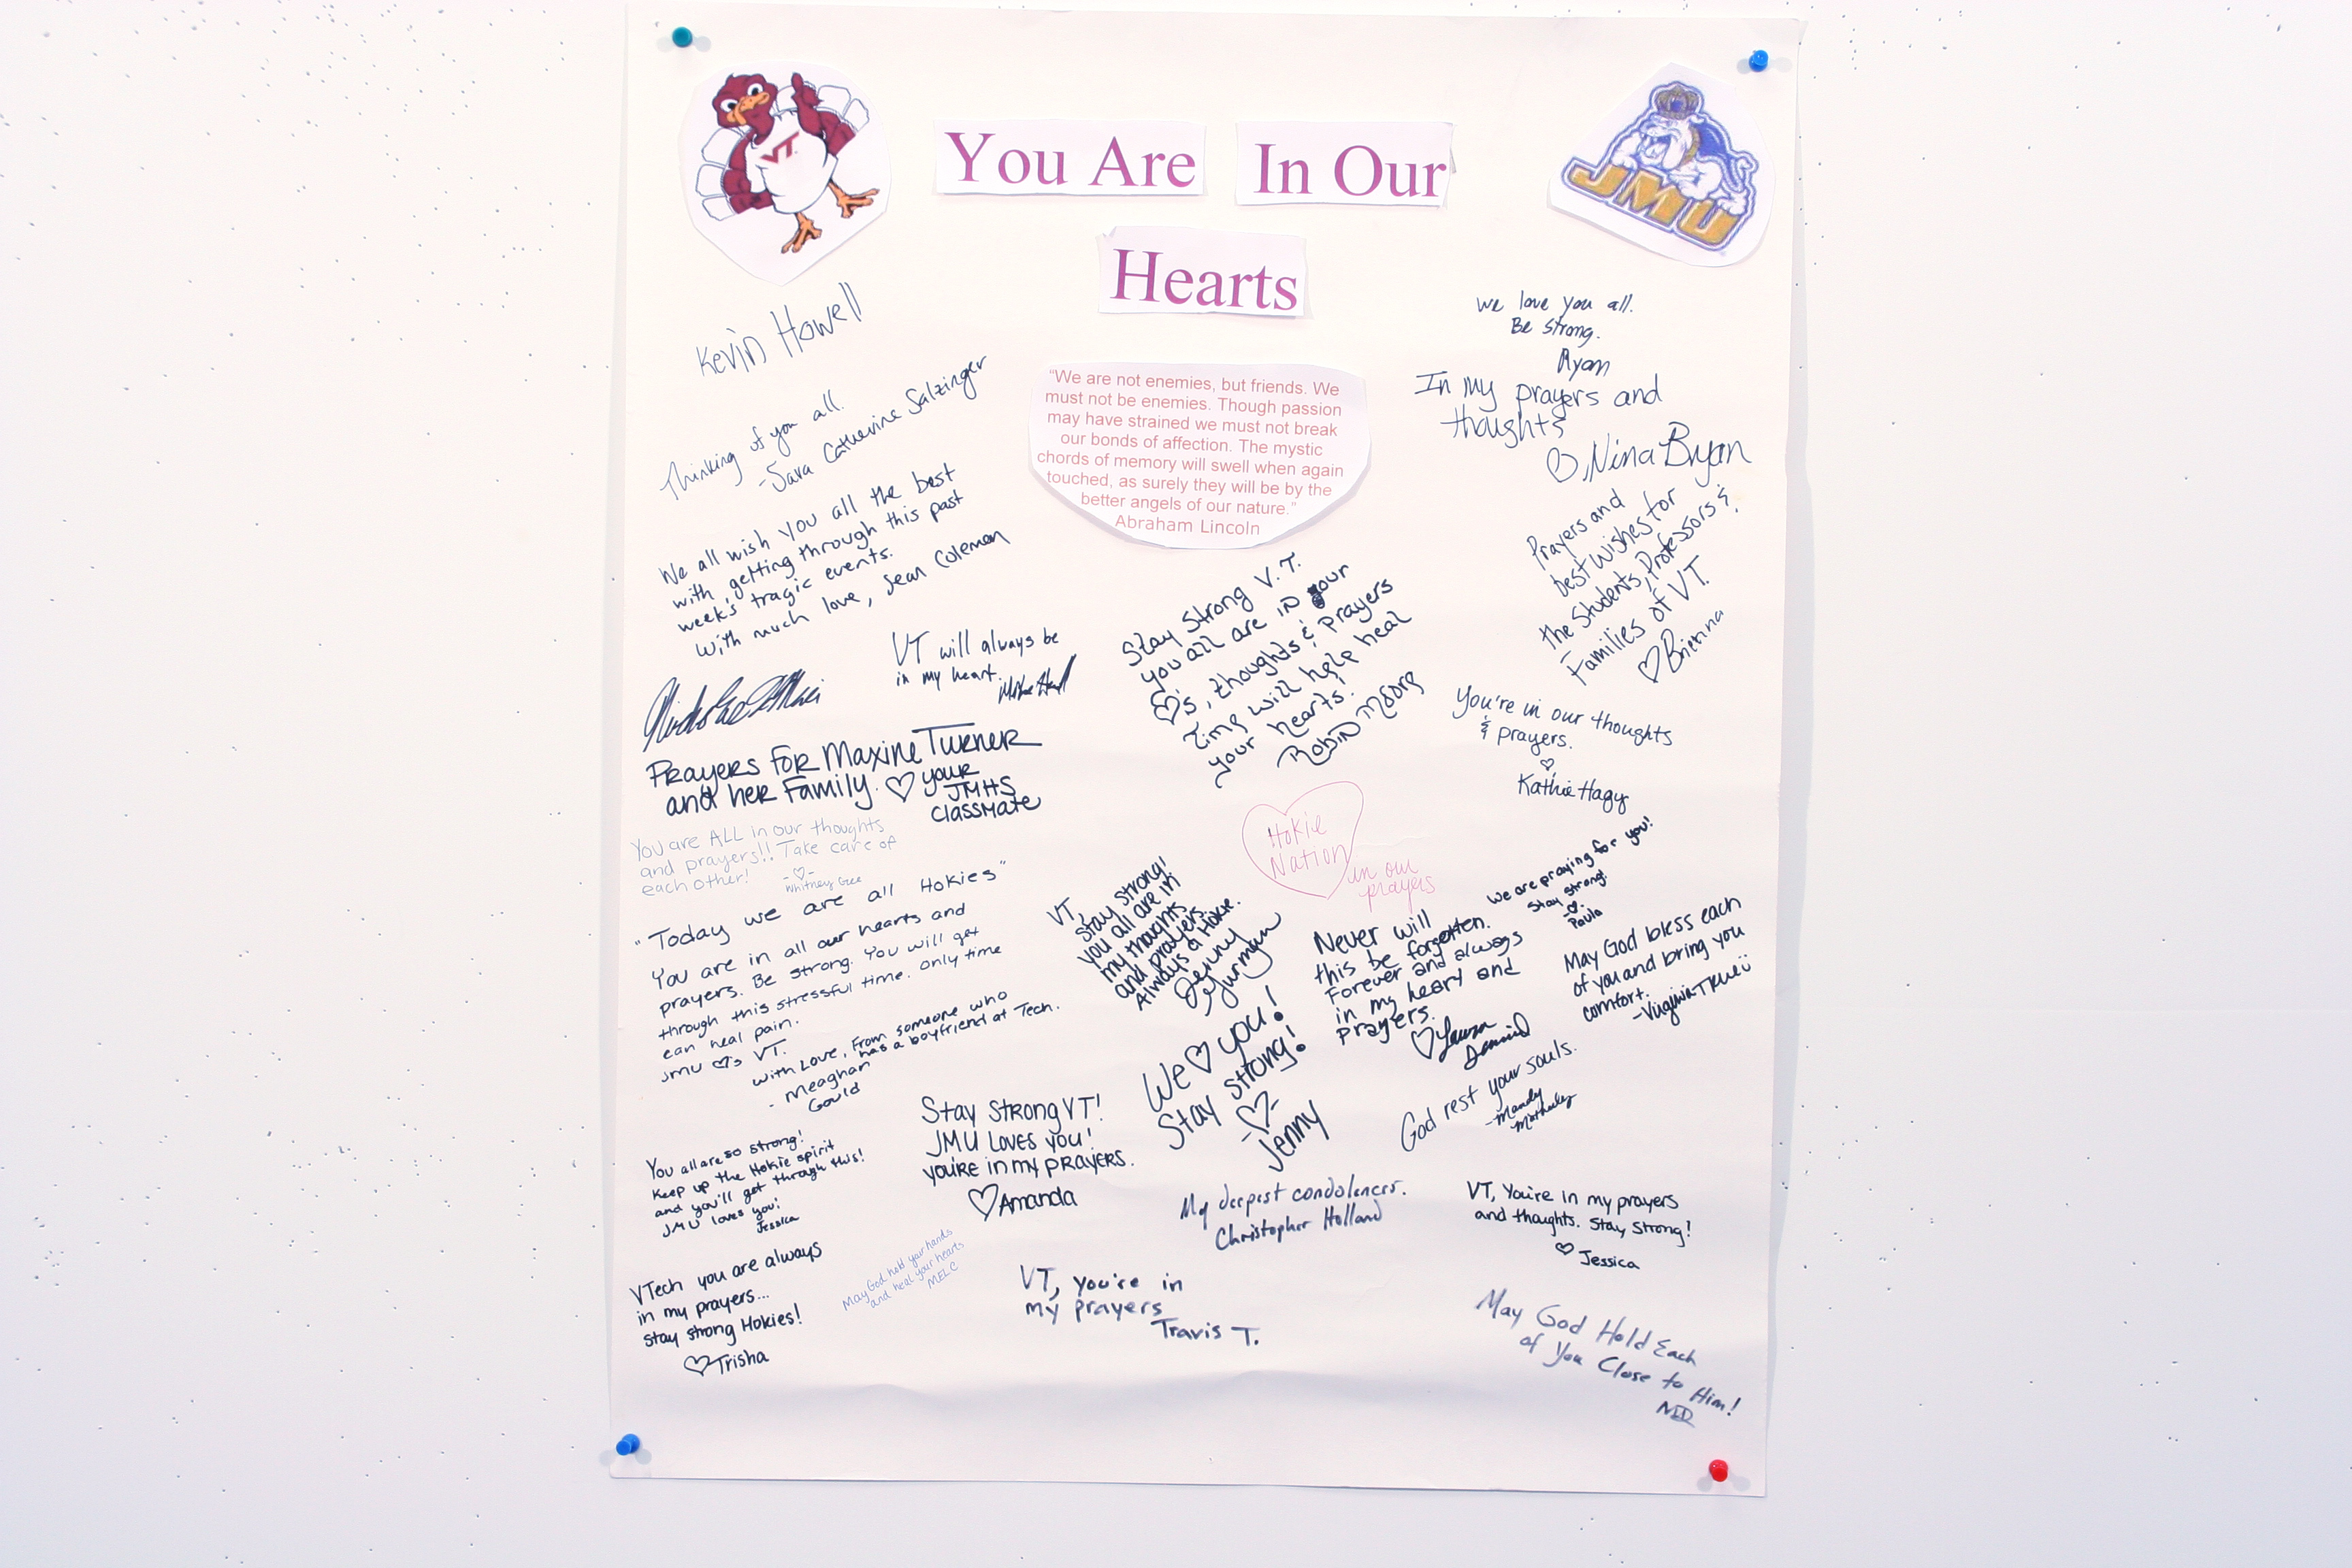 VT
You Are In Our
Hearts
JMU
Kevin Howell
Thinking of you all.
-Sara Catherine Salzinger
We all wish you all the best
with getting through this past
week's tragic events.
With much love, Sean Coleman
"We are not enemies, but friends. We
must not be enemies. Though passion
may have strained we must not break
our bonds of affection. The mystic
chords of memory will swell when again
touched, as surely they will be by the
better angels of our nature."
Abraham Lincoln
we love you all.
Be strong.
Ryan
In my prayers and
thoughts
♡, Nina Bryan
Prayers and
best wishes for
the Students, Professors &
Families of VT.
♡ Brienna
VT will always be
in my heart.
Stay Strong V.T.
you all are in our
♡'s, thoughts & prayers
Time will help heal
your hearts!
Robin Moore
You're in our thoughts
& prayers.
♡
Kathie Hagy
Prayers for Maxine Turner
and her Family. ♡ your
JMHS
Classmate
You are ALL in our thoughts
and prayers!! Take care of
each other!
-♡-
Whitney Gee
Hokie
Nation
in our
prayers
we are praying for you!
Stay strong!
-♡-
Paula
"Today we are all Hokies"
You are in all our hearts and
prayers. Be strong. You will get
through this stressful time. Only time
can heal pain.
JMU ♡'s VT.
With Love, From someone who
has a boyfriend at Tech.
- Meaghan
Gould
VT,
Stay strong!
you all are in
my thoughts
and prayers.
Always a Hokie.
Jenny
Never will
this be forgotten.
Forever and always
in my heart and
prayers.
♡ Laura
Daniel
May God bless each
of you and bring you
comfort.
-Virginia True
We ♡ you!
Stay strong!
-♡-
Jenny
God rest your souls.
-Mandy
Stay Strong VT!
JMU Loves you!
you're in my prayers.
♡ Amanda
You all are so strong!
Keep up the Hokie spirit
and you'll get through this!
JMU loves you!
Jessica
My deepest condolences.
Christopher Holland
VT, You're in my prayers
and thoughts. Stay Strong!
♡ Jessica
VTech you are always
in my prayers...
stay strong Hokies!
♡ Trisha
May God hold your hands
and heal your hearts
MELC
VT, you're in
my prayers
Travis T.
May God Hold Each
of You Close to Him!